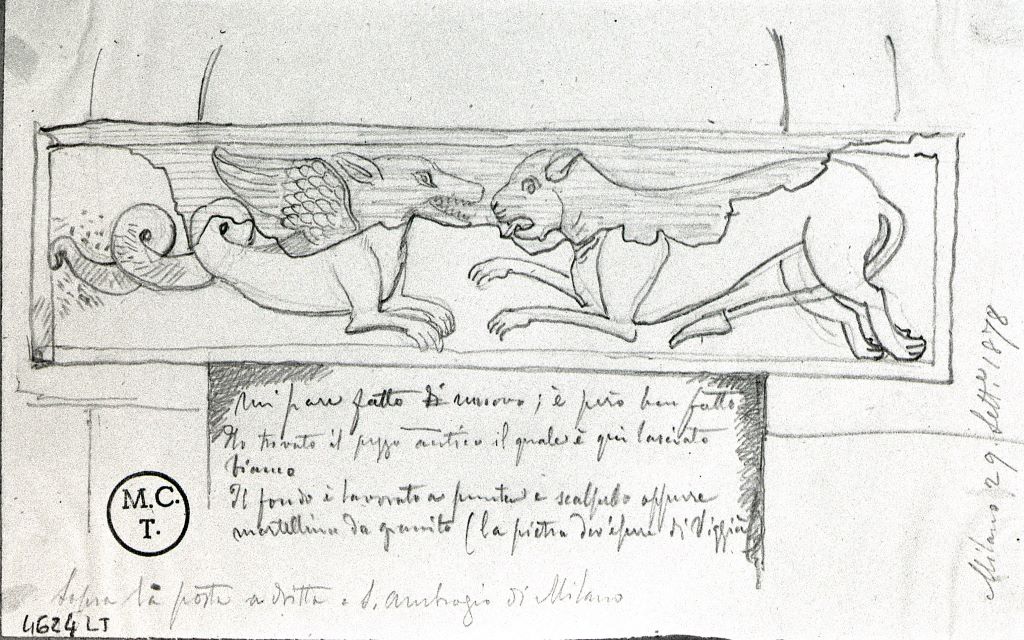 Mi pare fatto di nuovo; è però ben fatto
Ho trovato il pezzo antico il quale è qui lasciato
bianco
Il fondo è lavorato a punta e scalpello oppure
martellina da granito (la pietra dev'essere di Viggiù
M.C.
T.
Sopra la porta a dritta a S. Ambrogio di Milano
4624 LT
Milano 29 Sett. 1878